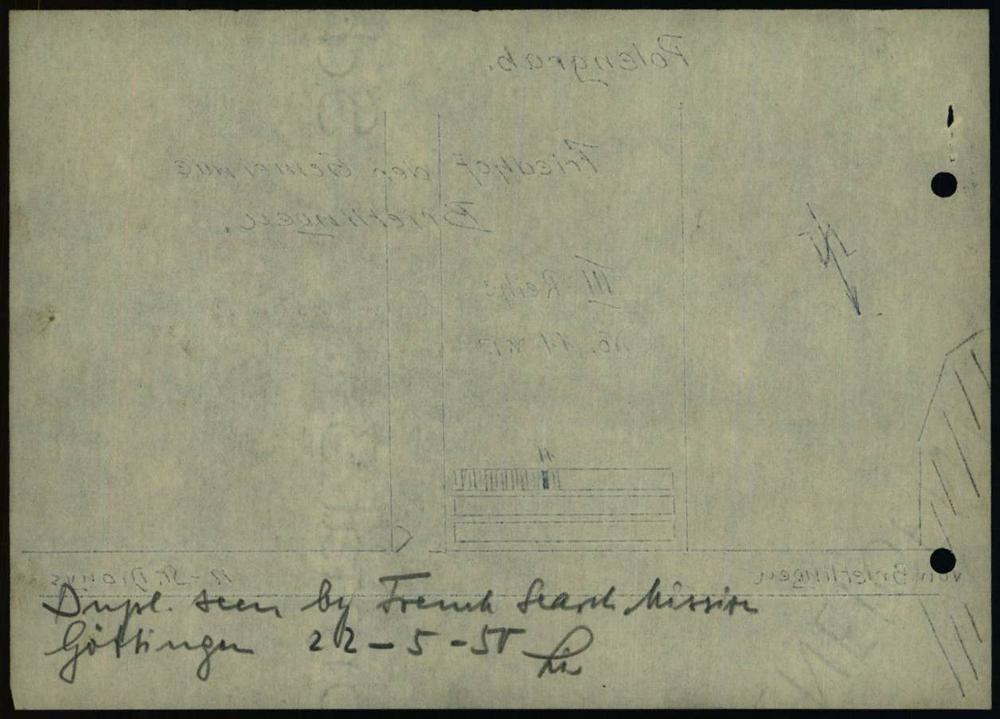 Polengrab.
Friedhof der Gemeinde
Brietlingen.
III Reihe
No. 11
von Brietlingen
n. St. Dionys
Dupl. seen by French Search Mission
Göttingen 22-5-50